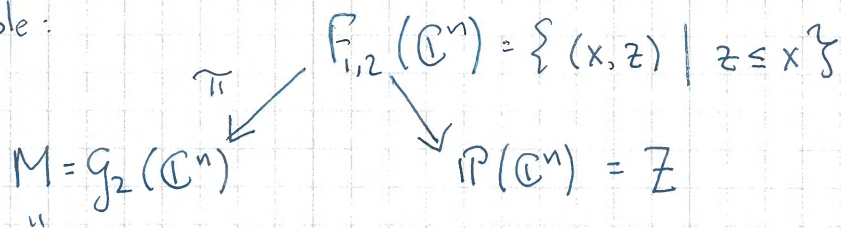 ple:
F₁,₂(ℂⁿ) = { (x, z) | z ≤ x }
π
M = G₂(ℂⁿ)
ℙ(ℂⁿ) = Z
"